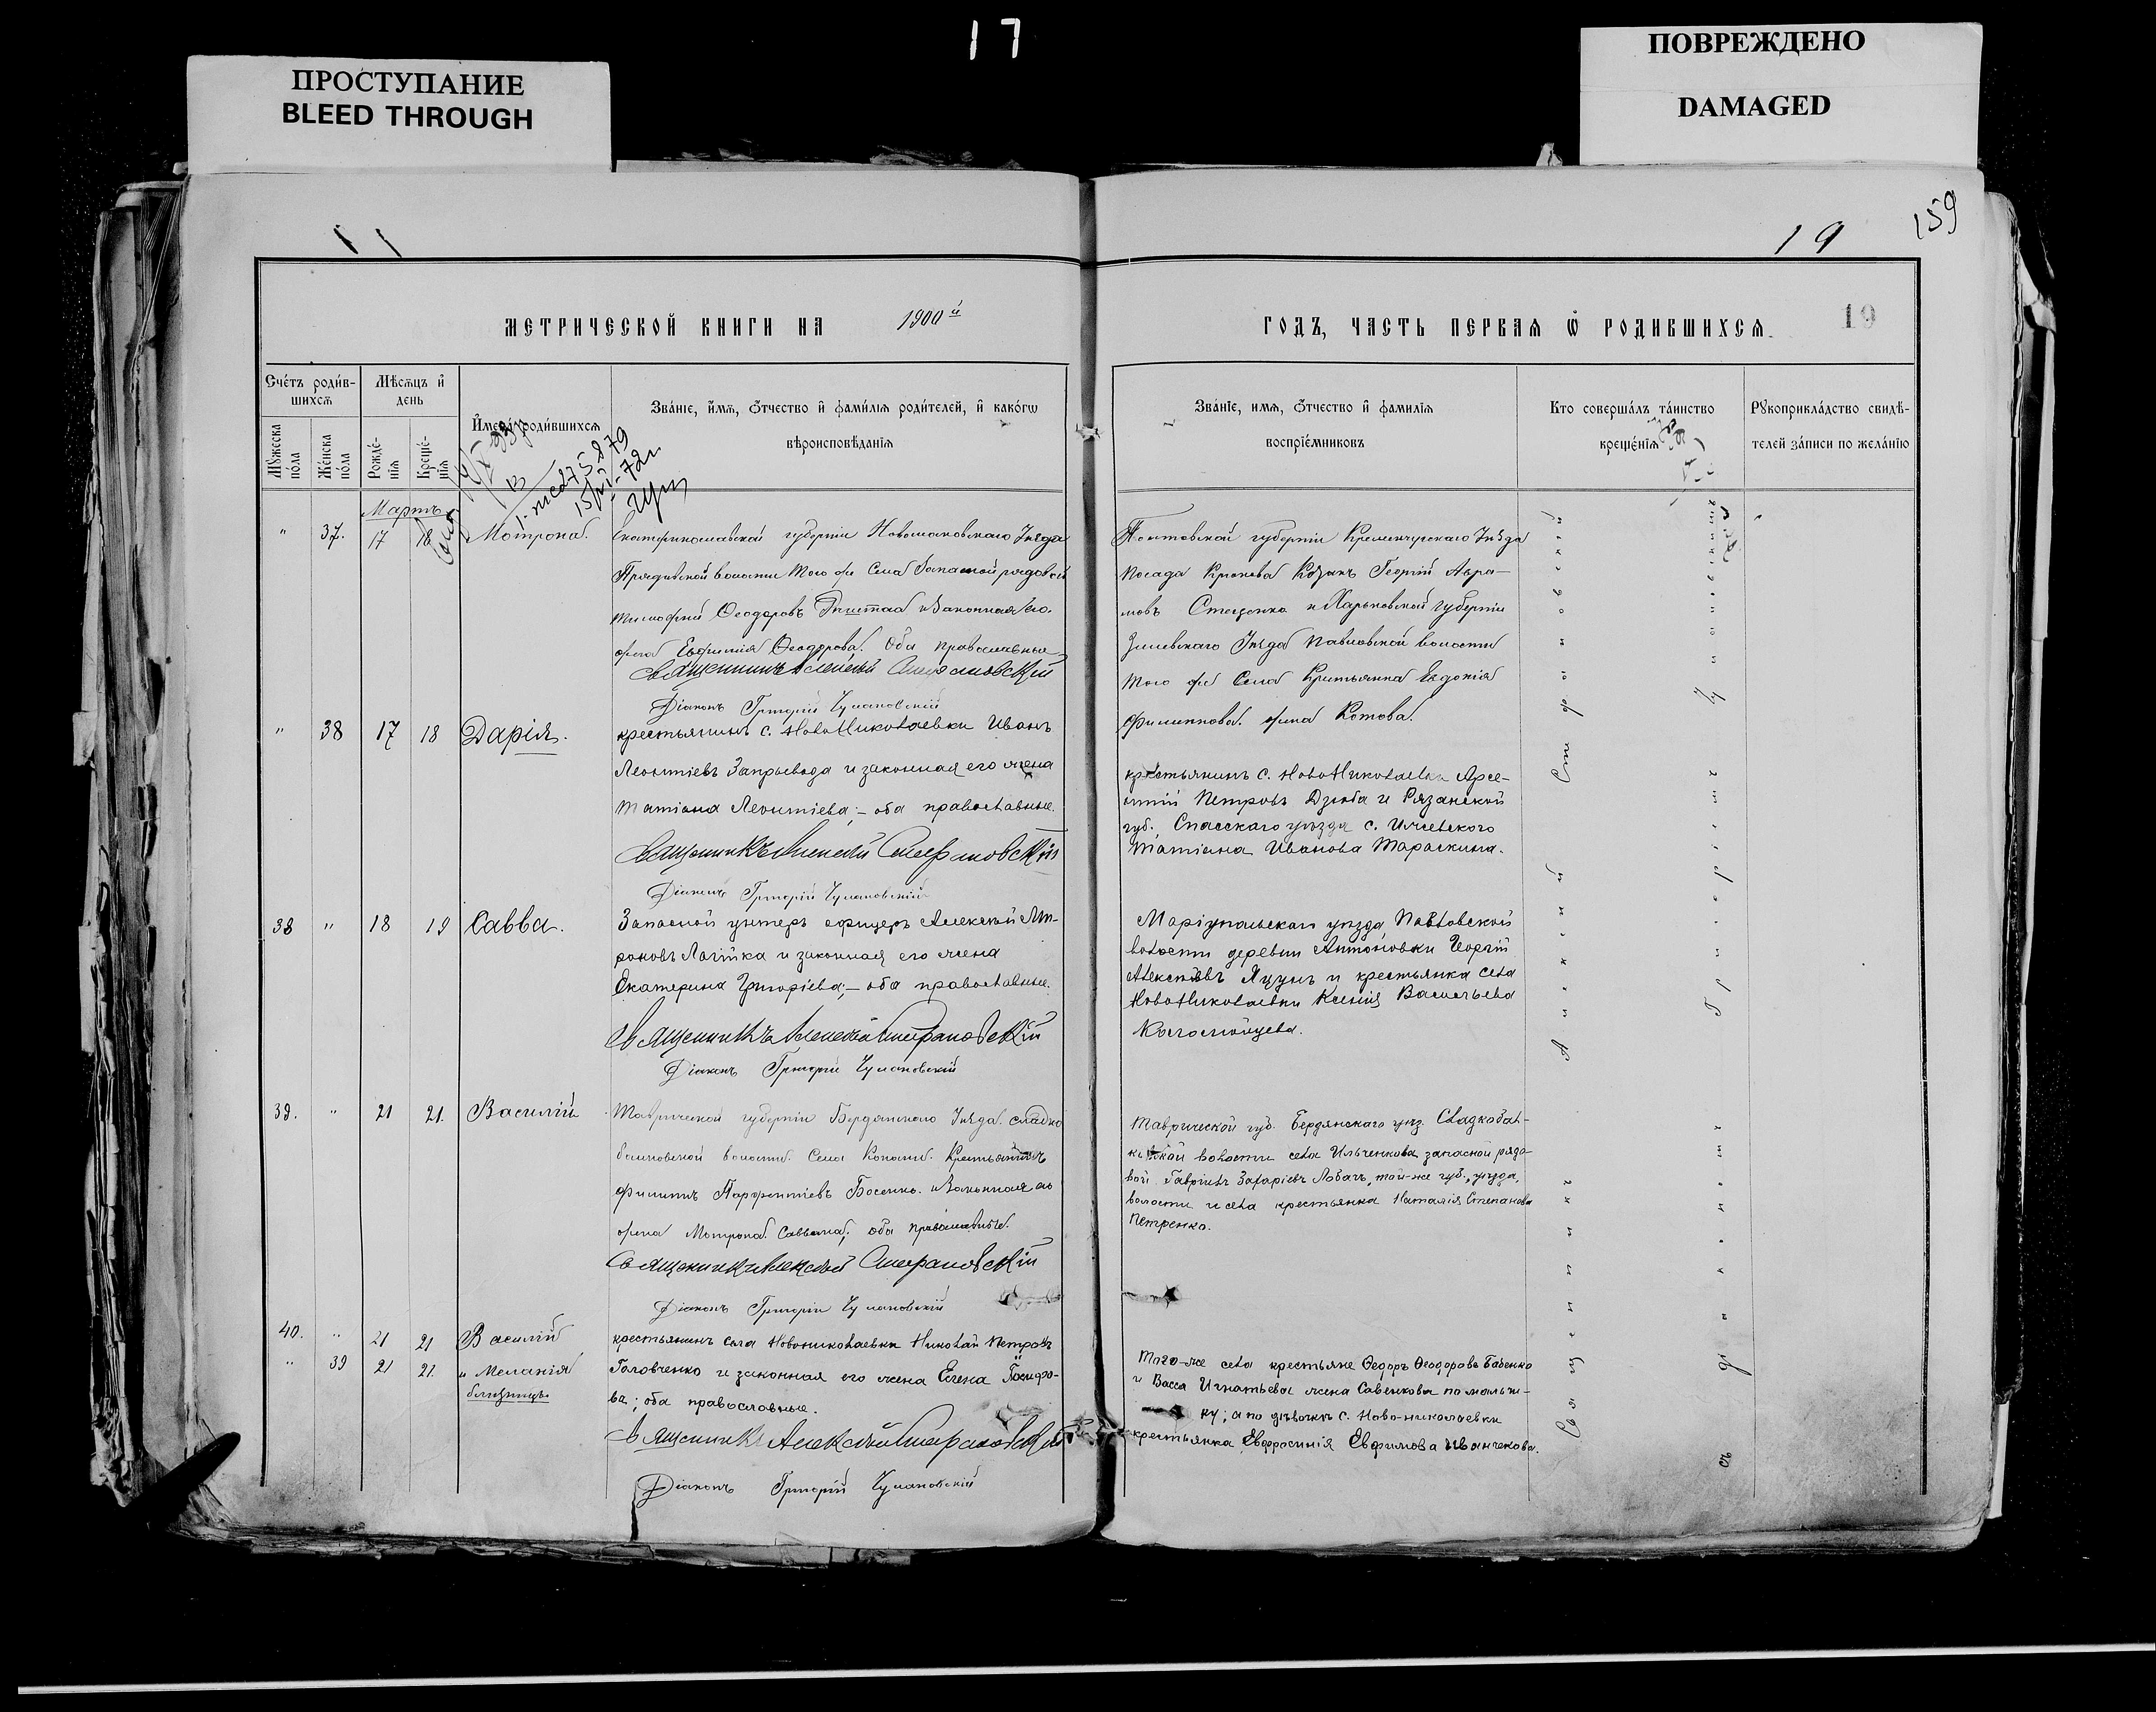 17
ПРОСТУПАНИЕ
BLEED THROUGH
ПОВРЕЖДЕНО
DAMAGED
159
19
19
МЕТРИЧЕСКОЙ КНИГИ НА 1900й
ГОДЪ, ЧАСТЬ ПЕРВАЯ Ѿ РОДИВШИХСЯ.
Счетъ родив-
шихся
Мѣсяцъ и
день
Мужеска
пола
Женска
пола
Рожде-
нія
Креще-
нія
Имена родившихся
Званіе, имя, отчество и фамилія родителей, и какогѡ
вѣроисповѣданія
Званіе, имя, отчество и фамилія
воспріемниковъ
Кто совершалъ таинство
крещенія
Рукоприкладство свидѣ-
телей записи по желанію
Мартъ
" 37. 17 18 Мотрона.
Екатеринославской губерніи Новомосковскаго Уѣзда
волости того же Села запасной рядовой
Тимофей Ѳеодоровъ и Законная его
жена Евфимія Ѳеодорова. Оба православные
Священникъ Алексей Стефановскій
Діаконъ Григорій Чумановскій
Полтавской губерніи Кременчугскаго Уѣзда
посада Крюкова Козакъ Георгій Авра-
мовъ Стаценко и Харьковской губерніи
Зміевскаго Уѣзда Павловской волости
того же Села Крестьянка Евдокія
Филиппова жена Котова.
" 38 17 18 Дарія.
крестьянинъ с. НовоНиколаевки Иванъ
Леонтіевъ Запрывода и законная его жена
Татіана Леонтіева;- оба православные.
Священникъ Алексей Стефановскій
Діаконъ Григорій Чумановскій
крестьянинъ с. НовоНиколаевки Арсе-
нтій Петровъ Дзюба и Рязанской
губ., Спасскаго уѣзда с.
Татіана Иванова Тараскина.
38 " 18 19 Савва.
Запасной унтеръ офицеръ Алексѣй Ми-
роновъ и законная его жена
Екатерина Григоріева;- оба православные.
Священникъ Алексей Стефановскій
Діаконъ Григорій Чумановскій
Маріупольскаго уѣзда Павловской
волости деревни Антоновки Георгій
Алексѣевъ Яцунъ и крестьянка села
НовоНиколаевки Ксенія Васильева
39. " 21 21. Василій
Таврической губерніи Бердянскаго Уѣзда. Сладко
балковской волости. Села Крестьянинъ
Филиппъ Парфентіевъ Босенко. и Законная его
жена Мотрона Саввина; оба православные.
Священникъ Алексей Стефановскій
Діаконъ Григорій Чумановскій
Таврической губ. Бердянскаго уѣз. Сладкобал-
ковской волости села Ильченкова запасной рядо-
вой Гавріилъ Захаріевъ Лобачъ, той-же губ., уѣзда,
волости и села крестьянка Наталія Степанова
Петренко.
40. " 21 21 Василій
" 39 21 21. и Меланія
близнецы.
крестьянинъ села Новониколаевки Николай Петровъ
Головченко и законная его жена Елена
ва; оба православные.
Священникъ Алексѣй Стефановскій
Діаконъ Григорій Чумановскій
Того-же села крестьяне Ѳедоръ Ѳеодоровъ Бабенко
и Васса Игнатьева жена Савенкова по мальчи-
ку; а по дѣвочкѣ с. Ново-николаевки
крестьянка Евфросинія Евфимова Иванчекова.
Священникъ Алексей Стефановскій
съ діакономъ Григоріемъ Чумановскимъ